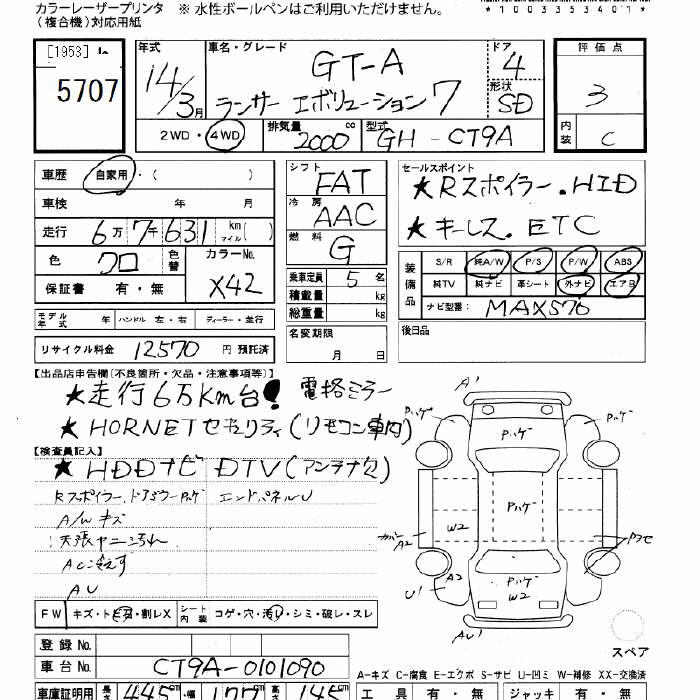 カラーレーザープリンタ ※ 水性ボールペンはご利用いただけません。
(複合機)対応用紙
*1003353401*
[1953]
5707
年式 車名・グレード ドア 評価点
14/3月 GT-A 4 3
ランサー エボリューション7 形状 SD
2WD・4WD 排気量 2000 cc 型式 GH-CT9A 内装 C
車歴 自家用・( )
車検 年 月
走行 6万7千631 km マイル( )
色 クロ 色替 カラーNo. X42
保証書 有・無
シフト FAT
冷房 AAC
燃料 G
乗車定員 5 名
積載量 kg
総重量 kg
名変期限
月 日
セールスポイント
★Rスポイラー.HID
★キーレス.ETC
装備品 S/R 純A/W P/S P/W ABS
純TV 純ナビ 革シート 外ナビ エアB
ナビ型番: MAX576
後日品
モデル年式 年 ハンドル 左・右 ディーラー・並行
リサイクル料金 12570 円 預託済
【出品店申告欄(不良箇所・欠品・注意事項等)】
★走行6万Km台! 電格ミラー
★HORNETセキュリティ(リモコン車内)
【検査員記入】
★HDDナビ DTV(アンテナ欠)
Rスポイラー.ドアミラーハゲ エンドパネルU
A/Wキズ
天張ヤニ汚れ
AC冷えず
AU
FW キズ・トビ石・割レX シート内装 コゲ・穴・汚レ・シミ・破レ・スレ
A'
ハゲ ハゲ ハゲ
カバーA2 W2 ハゲ
A2 ハゲ W2
U' AU'
スペア
登録No.
車台No. CT9A-0101090
A-キズ C-腐食 E-エクボ S-サビ U-凹ミ W-補修 XX-交換済
車庫証明用 長さ 445 cm ・幅 177 cm 高さ 145 cm
工具 有・無 ジャッキ 有・無